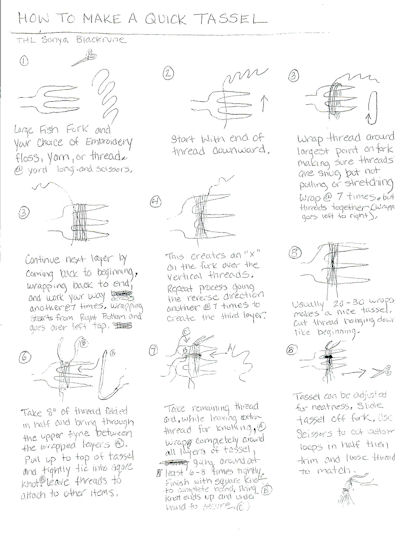 HOW TO MAKE A QUICK TASSEL
THL Sonya Blackrune
①
Large Fish Fork and
Your Choice of Embroidery
floss, yarn, or thread.
@ yard long and scissors.
②
Start with end of
thread downward.
③
Wrap thread around
largest point on fork
making sure threads
are snug but not
pulling or stretching
wrap @ 7 times, but
threads together (wraps
goes left to right).
③
Continue next layer by
coming back to beginning,
wrapping back to end,
and work your way
another 7 times. Wrapping
starts from Right Bottom and
goes over left top.
④
This creates an "X"
on the fork over the
vertical threads.
Repeat process going
the reverse direction
another @ 7 times to
create the third layer.
⑤
Usually 20-30 wraps
makes a nice tassel.
Cut thread hanging down
like beginning.
⑥
Take 8" of thread folded
in half and bring through
the upper tyne between
the wrapped layers
Pull up to top of tassel
and tightly tie into
knot leave threads to
attach to other items.
⑦
Take remaining thread
and, while leaving extra
thread for knotting,
wrap completely around
all layers of tassel
going around at
least 6-8 times tightly.
Finish with square knot
to complete
knot ends up and under
⑧
Tassel can be adjusted
for neatness. Slide
tassel off fork. Use
Scissors to cut
loops in half then
trim and loose thread
to match.